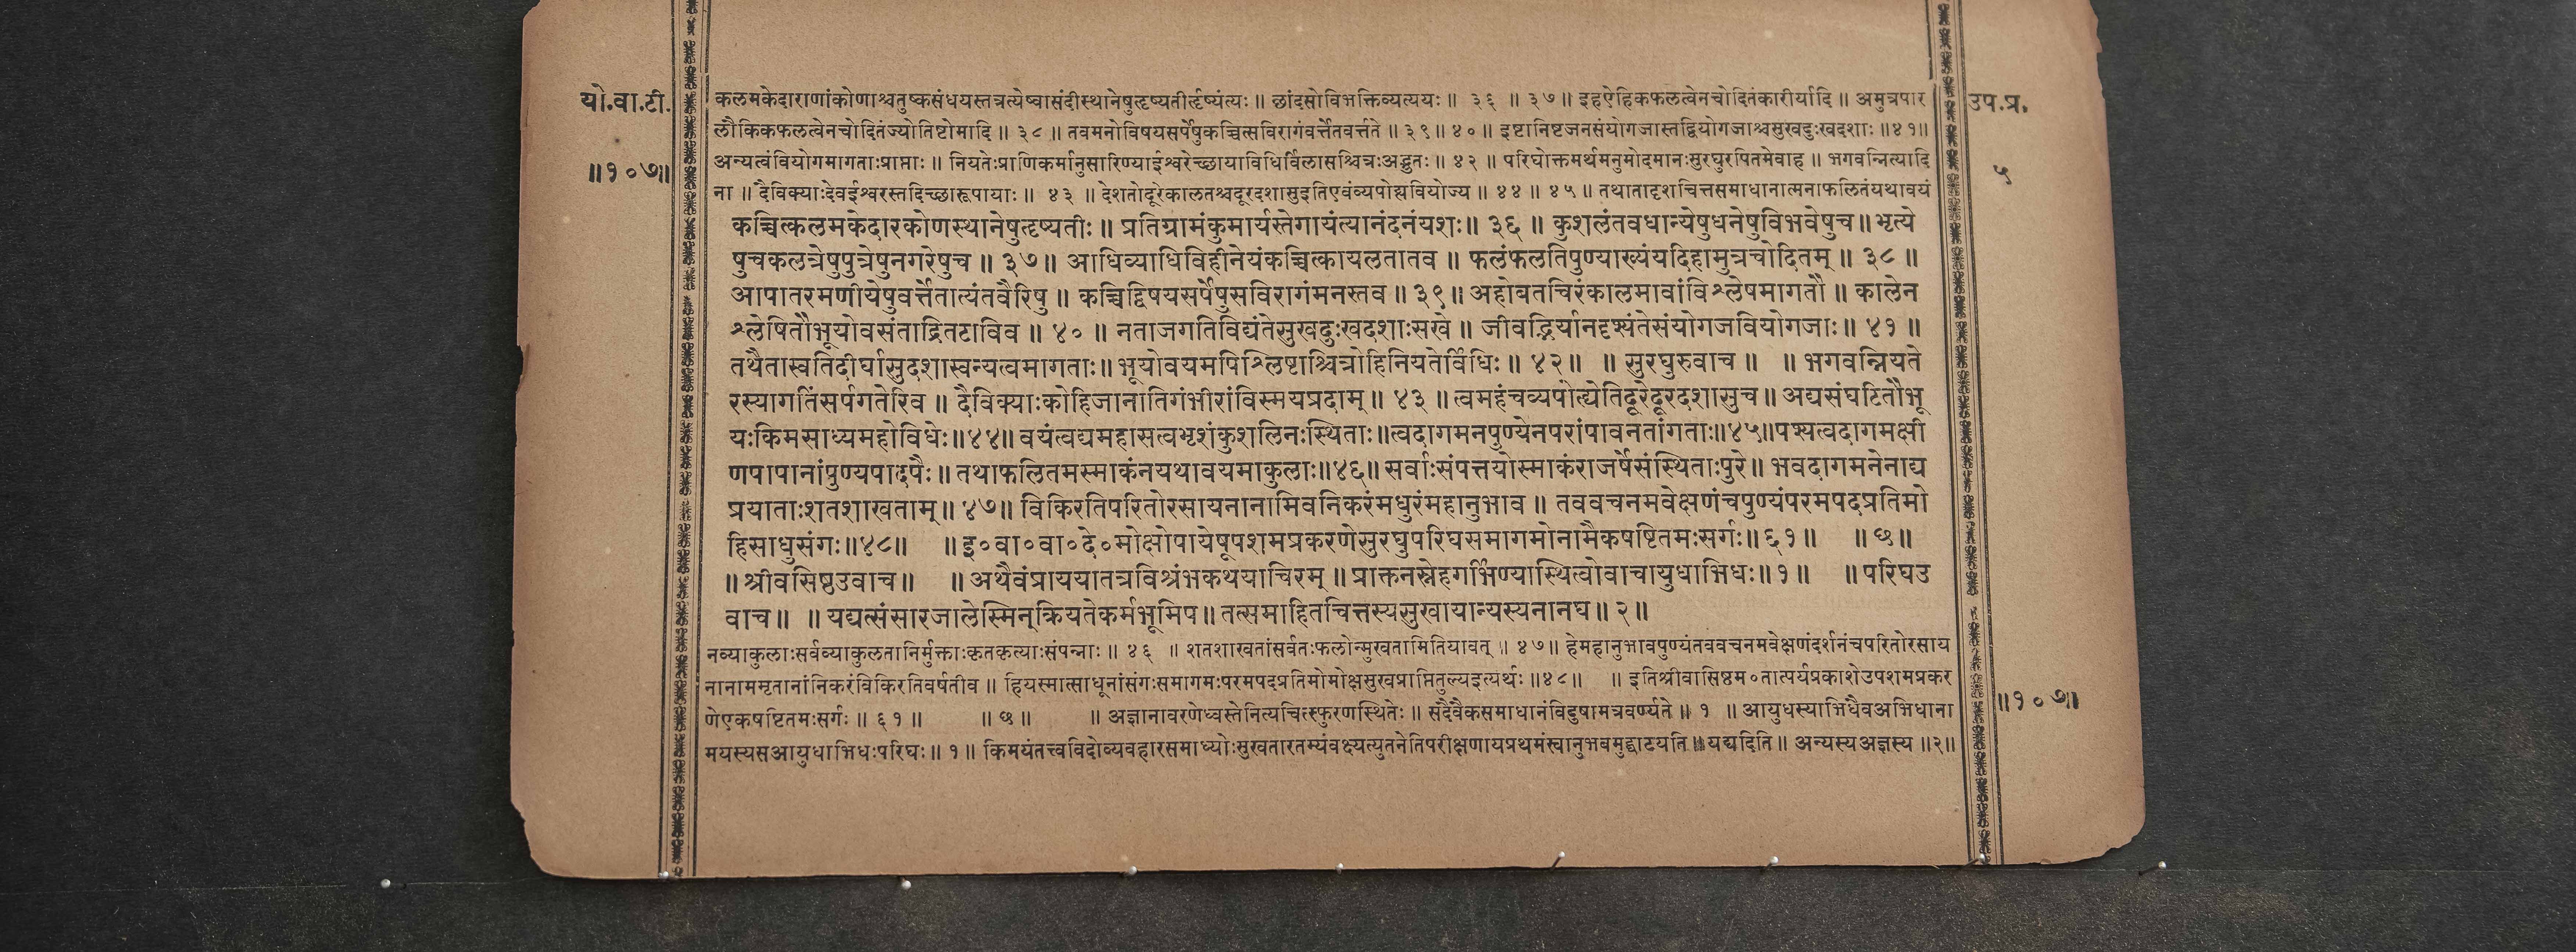 यो.वा.टी.
॥१०७॥
उप.प्र.
५
कलमकेदाराणांकोणाश्चतुष्कसंधयस्तत्रत्येष्वासंदीस्थानेषुतृष्यतीर्तृष्यंत्यः ॥ छांदसोविभक्तिव्यत्ययः ॥ ३६ ॥ ३७ ॥ इहऐहिकफलत्वेनचोदितंकारीर्यादि ॥ अमुत्रपार
लौकिकफलत्वेनचोदितंज्योतिष्टोमादि ॥ ३८ ॥ तवमनोविषयसर्पेषुकच्चित्सविरागंवर्त्ततेवर्त्तते ॥ ३९ ॥ ४० ॥ इष्टानिष्टजनसंयोगजास्तद्वियोगजाश्चसुखदुःखदशाः ॥४१॥
अन्यत्वंवियोगमागताःप्राप्ताः ॥ नियतेःप्राणिकर्मानुसारिण्याईश्वरेच्छायाविधिर्विलासश्चित्रःअद्भुतः ॥ ४२ ॥ परिघोक्तमर्थमनुमोदमानःसुरघुरपितमेवाह ॥ भगवन्नित्यादि
ना ॥ दैविक्याःदेवईश्वरस्तदिच्छारूपायाः ॥ ४३ ॥ देशतोदूरेकालतश्चदूरदशासुइतिएवंव्यपोह्यवियोज्य ॥ ४४ ॥ ४५ ॥ तथातादृशचित्तसमाधानात्मनाफलितंयथावयं
कच्चित्कलमकेदारकोणस्थानेषुतृष्यतीः ॥ प्रतिग्रामंकुमार्यस्तेगायंत्यानंदनंयशः॥ ३६ ॥ कुशलंतवधान्येषुधनेषुविभवेषुच ॥ भृत्ये
षुचकलत्रेषुपुत्रेषुनगरेषुच ॥ ३७॥ आधिव्याधिविहीनेयंकच्चित्कायलतातव ॥ फलंफलतिपुण्याख्यंयदिहामुत्रचोदितम् ॥ ३८ ॥
आपातरमणीयेषुवर्त्ततेत्यंतवैरिषु ॥ कच्चिद्विषयसर्पेषुसविरागंमनस्तव ॥ ३९॥ अहोबतचिरंकालमावांविश्लेषमागतौ ॥ कालेन
श्लेषितौभूयोवसंताद्रितटाविव ॥ ४० ॥ नताजगतिविद्यंतेसुखदुःखदशाःसखे ॥ जीवद्भिर्यानदृश्यंतेसंयोगजवियोगजाः॥ ४१ ॥
तथैतास्वतिदीर्घासुदशास्वन्यत्वमागताः॥ भूयोवयमपिश्लिष्टाश्चित्रोहिनियतेर्विधिः ॥ ४२॥ ॥ सुरघुरुवाच ॥ ॥ भगवन्नियते
रस्यागतिंसर्पगतेरिव ॥ दैविक्याःकोहिजानातिगंभीरांविस्मयप्रदाम् ॥ ४३ ॥ त्वमहंचव्यपोह्येतिदूरेदूरदशासुच ॥ अद्यसंघटितौभू
यःकिमसाध्यमहोविधेः॥४४॥ वयंत्वद्यमहासत्वभृशंकुशलिनःस्थिताः॥त्वदागमनपुण्येनपरांपावनतांगताः॥४५॥पश्यत्वदागमक्षी
णपापानांपुण्यपादपैः ॥ तथाफलितमस्माकंनयथावयमाकुलाः॥४६॥ सर्वाःसंपत्तयोस्माकंराजर्षेसंस्थिताःपुरे॥ भवदागमनेनाद्य
प्रयाताःशतशाखताम् ॥ ४७॥ विकिरतिपरितोरसायनानामिवनिकरंमधुरंमहानुभाव ॥ तववचनमवेक्षणंचपुण्यंपरमपदप्रतिमो
हिसाधुसंगः॥४८॥ ॥ इ०वा०वा०दे०मोक्षोपायेषूपशमप्रकरणेसुरघुपरिघसमागमोनामैकषष्टितमःसर्गः॥ ६१॥ ॥ छ॥
॥ श्रीवसिष्ठउवाच॥ ॥ अथैवंप्राययातत्रविश्रंभकथयाचिरम् ॥ प्राक्तनस्नेहगर्भिण्यास्थित्वोवाचायुधाभिधः॥ १॥ ॥ परिघउ
वाच॥ ॥ यद्यत्संसारजालेस्मिन्क्रियतेकर्मभूमिप॥ तत्समाहितचित्तस्यसुखायान्यस्यनानघ॥ २॥
नव्याकुलाःसर्वव्याकुलतानिर्मुक्ताःकृतकृत्याःसंपन्नाः ॥ ४६ ॥ शतशाखतांसर्वतःफलोन्मुखतामितियावत् ॥ ४७॥ हेमहानुभावपुण्यंतववचनमवेक्षणंदर्शनंचपरितोरसाय
नानाममृतानांनिकरंविकिरतिवर्षतीव ॥ हियस्मात्साधूनांसंगःसमागमःपरमपदप्रतिमोमोक्षसुखप्राप्तितुल्यइत्यर्थः ॥४८॥ ॥ इतिश्रीवासिष्ठम०तात्पर्यप्रकाशेउपशमप्रकर
णेएकषष्टितमःसर्गः ॥ ६१ ॥ ॥ छ ॥ ॥ अज्ञानावरणेध्वस्तेनित्यचित्स्फुरणस्थितेः ॥ सदैवैकसमाधानंविदुषामत्रवर्ण्यते ॥ १ ॥ आयुधस्याभिधैवअभिधाना
मयस्यसआयुधाभिधःपरिघः॥ १॥ किमयंतत्त्वविदोव्यवहारसमाध्योःसुखतारतम्यंवक्ष्यत्युतनेतिपरीक्षणायप्रथमंस्वानुभवमुद्घाटयति ॥ यद्यदिति ॥ अन्यस्यअज्ञस्य ॥२॥
॥१०७॥